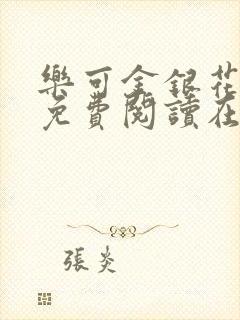 樂可金銀花
免費閱讀在
張炎